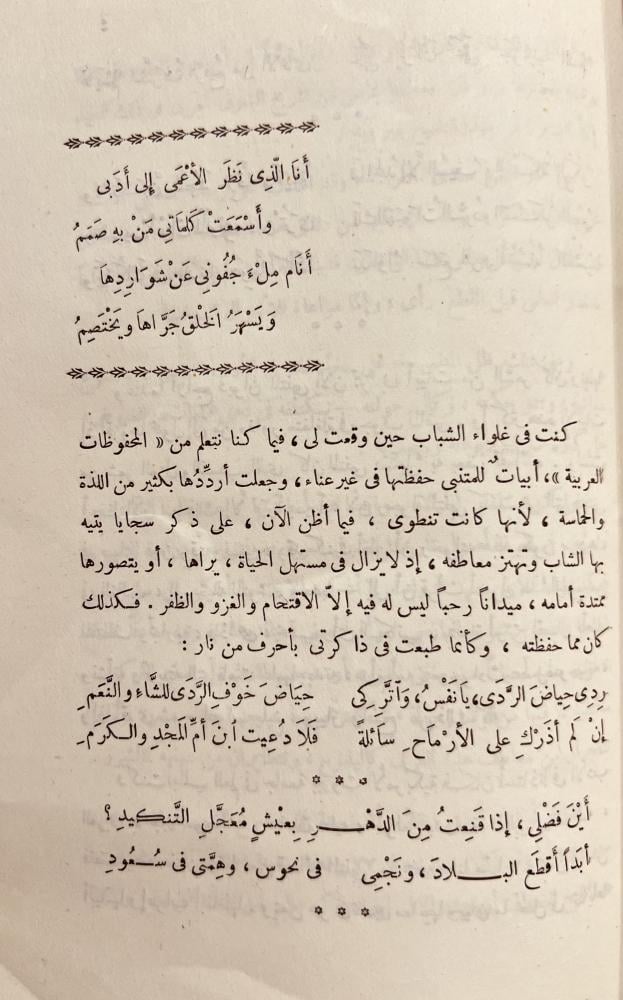 أَنَا الَّذِى نَظَرَ الأَعْمَى إِلى أَدَبى
وأَسْمَعَتْ كَلِمَاتِى مَنْ بِهِ صَمَمُ
أَنَام مِلْءَ جُفُونِى عَنْ شَوَارِدِهاَ
وَيَسْهَرُ الَخْلقُ جَرَّاهاَ ويَخْتَصِمُ
كنت فى غلواء الشباب حين وقعت لى ، فيما كنا نتعلم من « المحفوظات
العربية » ، أبياتٌ للمتنبى حفظتها فى غير عناء ، وجعلت أردِّدُها بكثير من اللذة
والحماسة ، لأنها كانت تنطوى ، فيما أظن الآن ، على ذكر سجايا يتيه
بها الشاب وتهتز معاطفه ، إذ لا يزال فى مستهل الحياة ، يراها ، أو يتصورها
ممتدة أمامه ، ميداناً رحباً ليس له فيه إلاّ الاقتحام والغزو والظفر . فكذلك
كان مما حفظته ، وكأنما طبعت فى ذاكرتى بأحرف من نار :
رِدِى حِياضَ الرَّدَى، يانَفْسُ، وَاتْرُكِى حِيَاضَ خَوْفِ الرَّدَى للشَّاءِ والنَّعَمِ
إِنْ لَم أذَرْكِ على الأرْماَحِ سَائِلَةً فَلاَ دُعِيت ابنَ أمِّ المَجْدِ والكَرَمِ
* * *
أَيْنَ فَضْلِى ، إذا قَنِعتُ مِنَ الدَّهْرِ بِعيْشٍ مُعَجَّلِ التَّنكيدِ ؟
أبَداً أَقْطَع البلادَ ، ونَجْمِى فى نحوس ، وهِمَّتى فى سُعُودِ
* * *